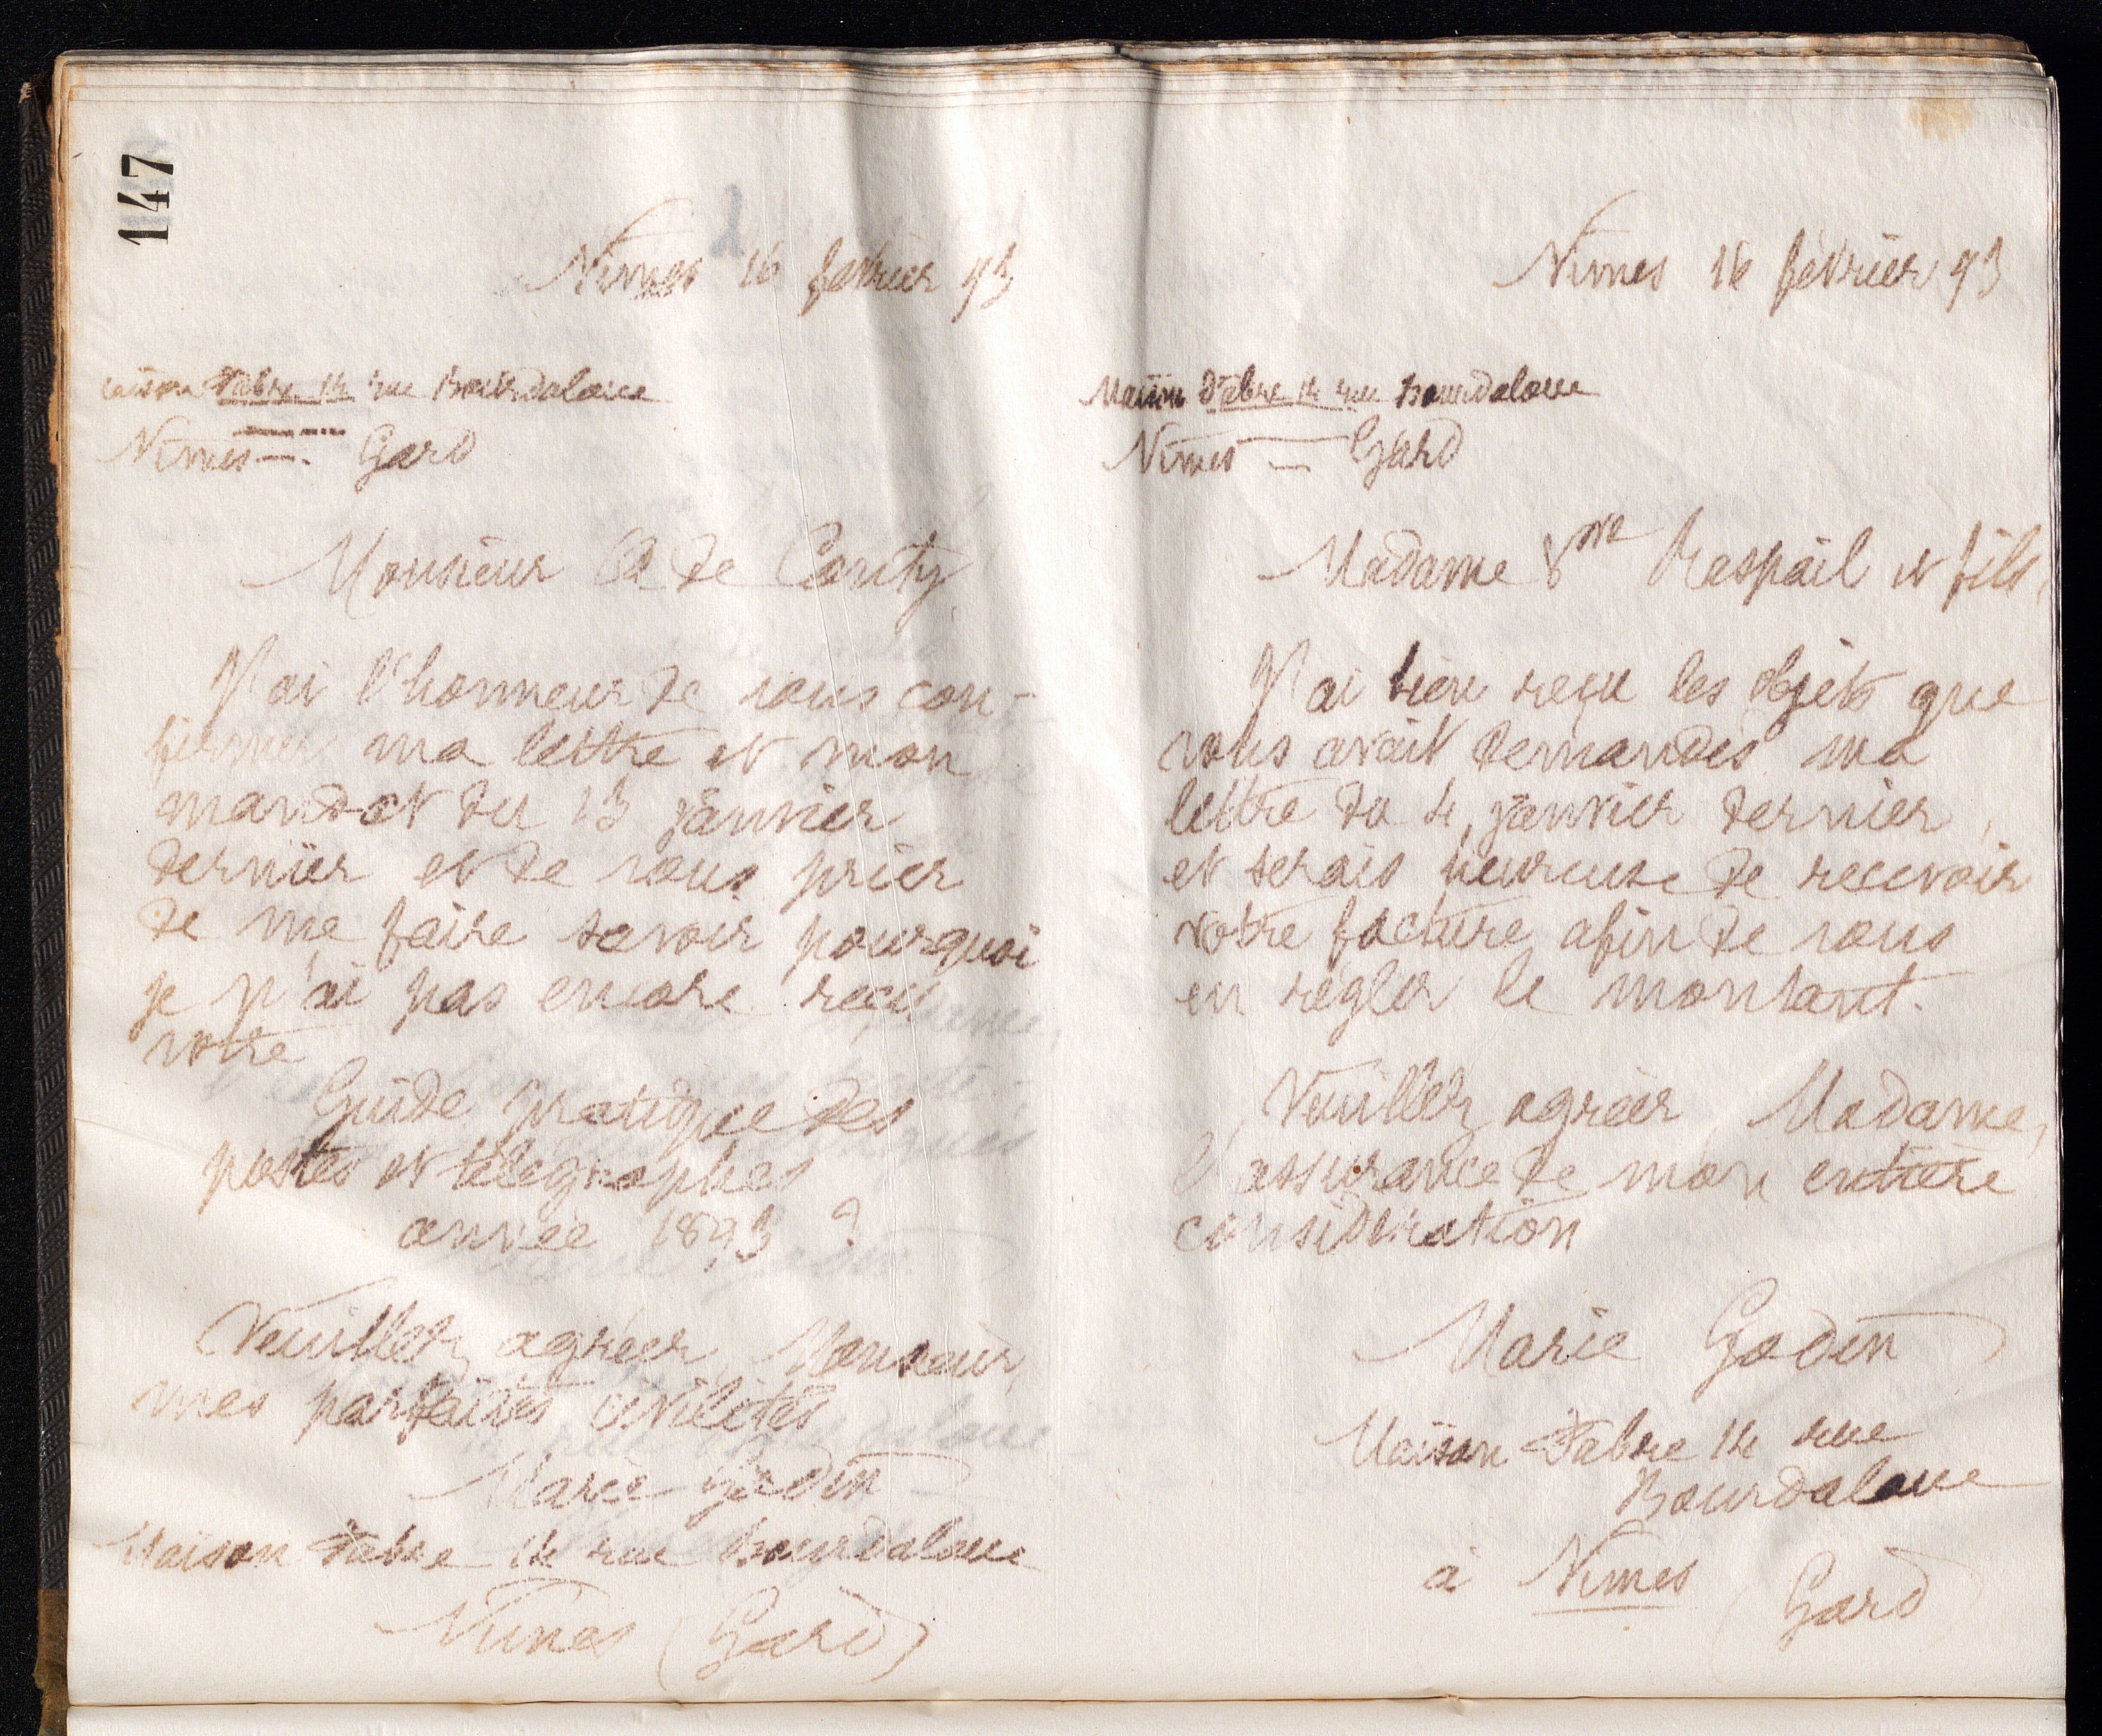 147
Nimes 16 février 93
Maison Fabre 14 rue Bourdaloue
Nimes — Gard
Monsieur A de Conty,
J'ai l'honneur de vous con-
firmer ma lettre et mon
mandat du 13 janvier
dernier et de vous prier
de me faire savoir pourquoi
je n'ai pas encore reçu
votre
Guide pratique des
postes et télégraphes
année 1893 ?
Veuillez agréer, Monsieur,
mes parfaites civilités
Marie Godin
Maison Fabre 14 rue Bourdaloue
Nimes (Gard)
Nimes 16 février 93
Maison Fabre 14 rue Bourdaloue
Nimes — Gard
Madame Vve Raspail et fils,
J'ai bien reçu les objets que
vous avait demandés ma
lettre du 4 janvier dernier,
et serais heureuse de recevoir
votre facture afin de vous
en régler le montant.
Veuillez agréer, Madame,
l'assurance de mon entière
considération
Marie Godin
Maison Fabre 14 rue
Bourdaloue
à Nimes (Gard)